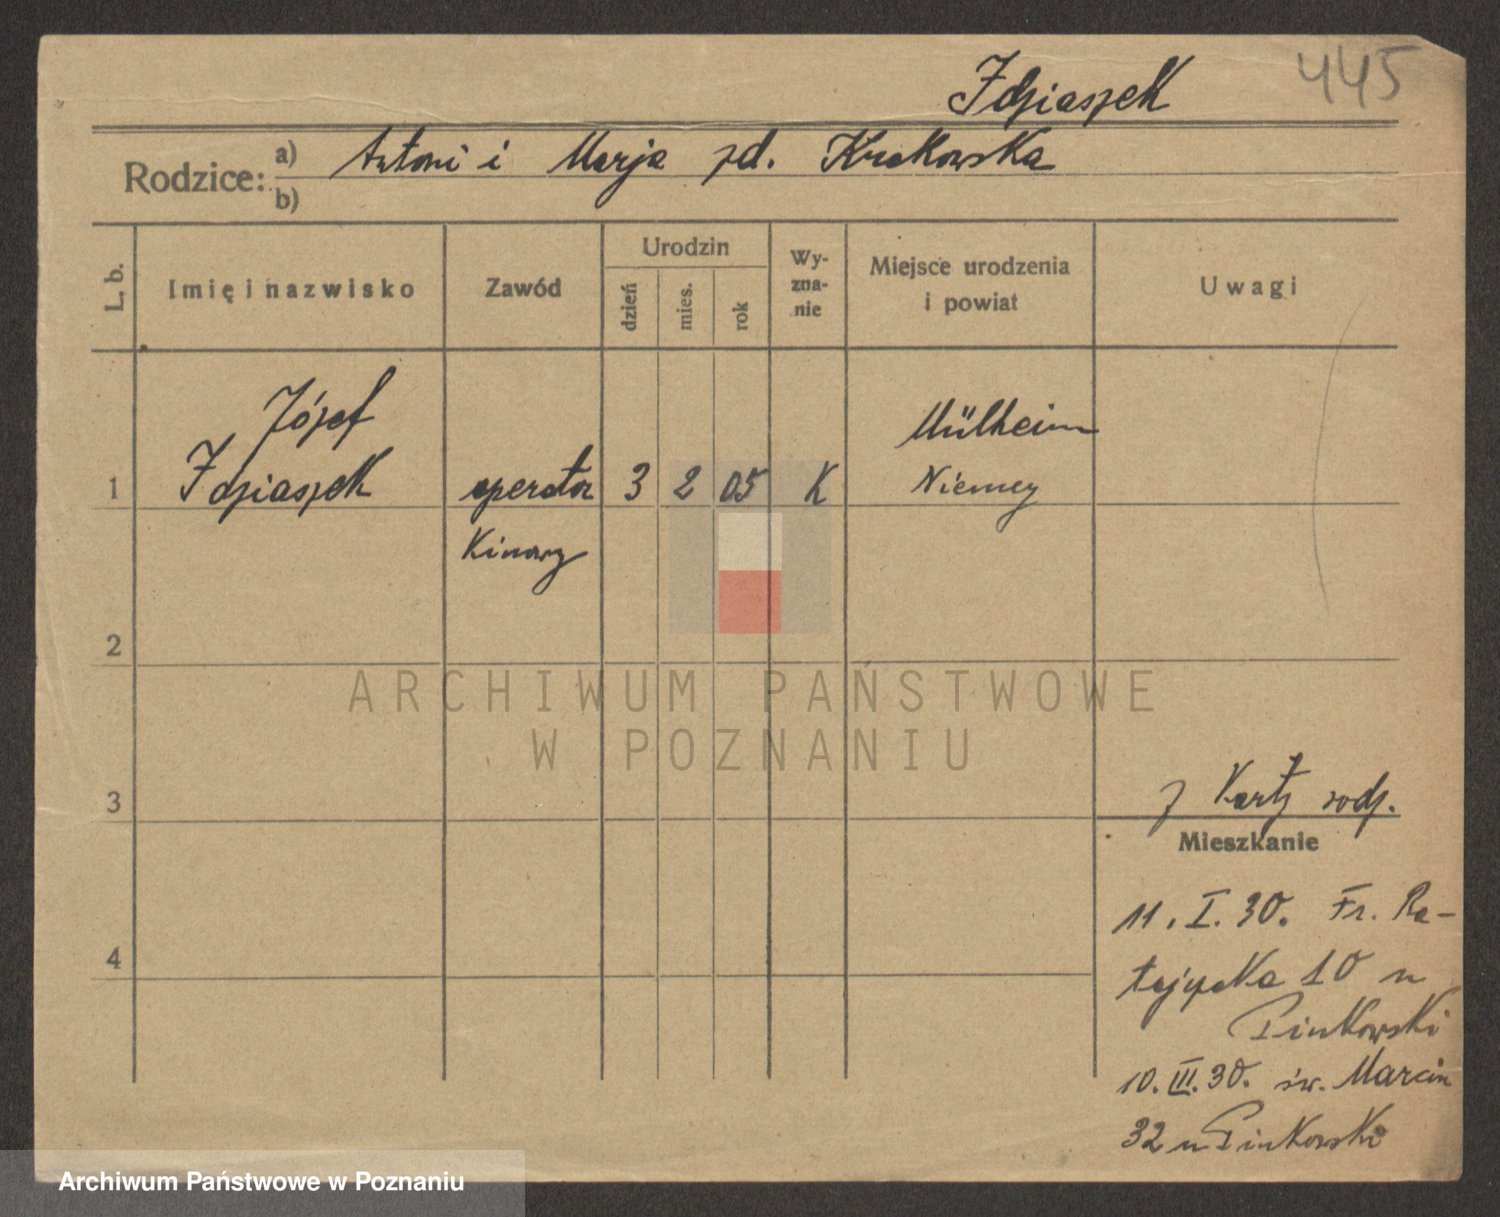 445
Zdziaszek
Rodzice: a) Antoni i Marja zd. Krakowska
b)
L. b.
Imię i nazwisko
Zawód
Urodzin
dzień
mies.
rok
Wy-
zna-
nie
Miejsce urodzenia
i powiat
Uwagi
Józef
Zdziaszek
1
operator
Kinowy
3 2 05
K
Mülheim
Niemcy
2
ARCHIWUM PAŃSTWOWE
W POZNANIU
3
z Karty rodz.
Mieszkanie
11. I. 30. Fr. Ra-
tajczaka 10 u
Pinkowski
4
10. III. 30. św. Marcin
32 u Pinkowski
Archiwum Państwowe w Poznaniu